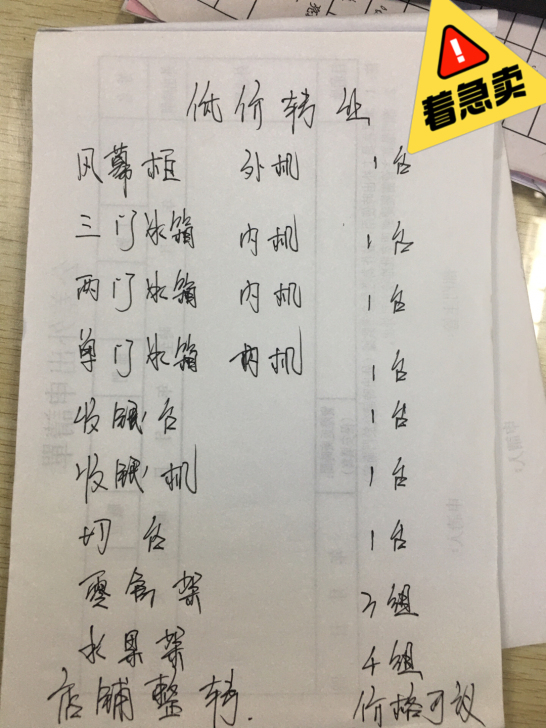 着急卖
低价转业
风幕柜 外机 1台
三门冰箱 内机 1台
两门冰箱 内机 1台
单门冰箱 内机 1台
收银台 1台
收银机 1台
切台 1台
零食架 3组
水果架 4组
店铺整转. 价格可议
外出申請單